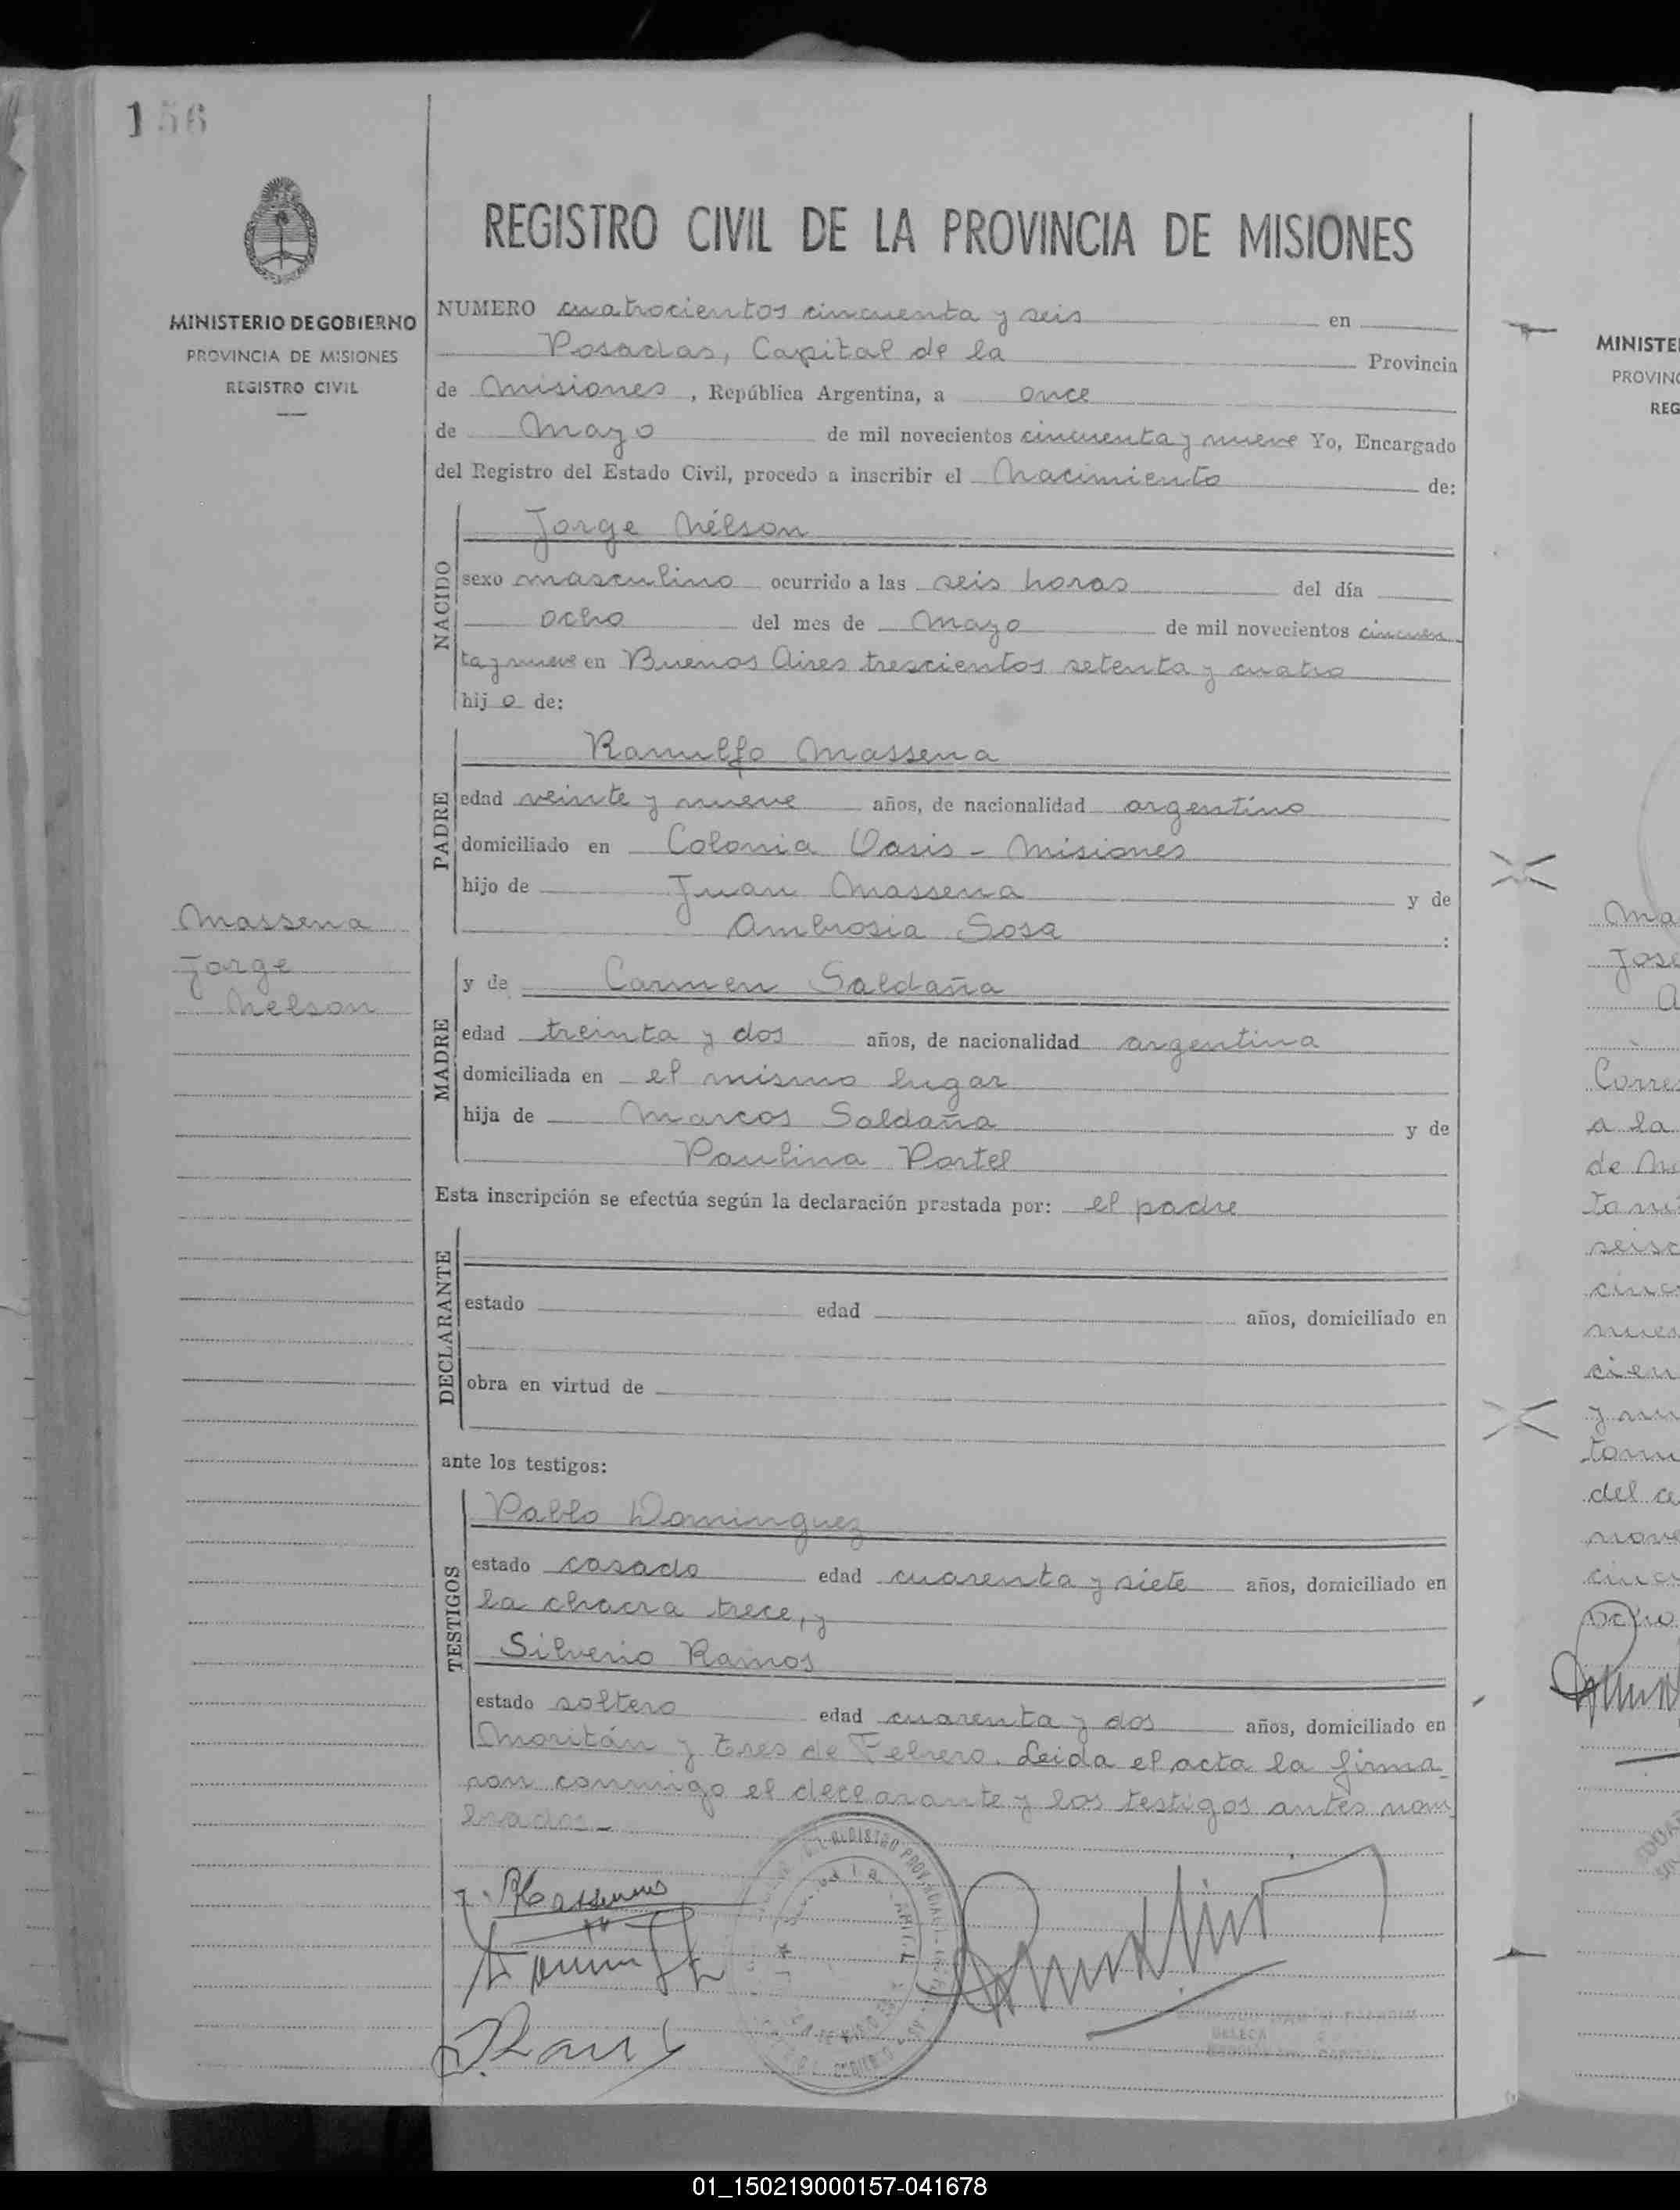 156
MINISTERIO DE GOBIERNO
PROVINCIA DE MISIONES
REGISTRO CIVIL
Massena
Jorge
Nelson
REGISTRO CIVIL DE LA PROVINCIA DE MISIONES
NUMERO cuatrocientos cincuenta y seis en
Posadas, Capital de la Provincia
de Misiones, República Argentina, a once
de Mayo de mil novecientos cincuenta y nueve Yo, Encargado
del Registro del Estado Civil, procedo a inscribir el Nacimiento de:
NACIDO
Jorge Nélson
sexo masculino ocurrido a las seis horas del día
ocho del mes de Mayo de mil novecientos cincuen
ta y nueve en Buenos Aires trescientos setenta y cuatro
hijo de:
PADRE
Ranulfo Massena
edad veinte y nueve años, de nacionalidad argentino
domiciliado en Colonia Oasis - Misiones
hijo de Juan Massena y de
Ambrosia Sosa :
MADRE
y de Carmen Saldaña
edad treinta y dos años, de nacionalidad argentina
domiciliada en el mismo lugar
hija de Marcos Saldaña y de
Paulina Portel
Esta inscripción se efectúa según la declaración prestada por: el padre
DECLARANTE
estado edad años, domiciliado en
obra en virtud de
ante los testigos:
TESTIGOS
Pablo Dominguez
estado casado edad cuarenta y siete años, domiciliado en
la chacra trece, y
Silverio Ramos
estado soltero edad cuarenta y dos años, domiciliado en
Moritán y Tres de Febrero. Leida el acta la firma
ron conmigo el declarante y los testigos antes nom
brados.-
MINISTE
PROVINC
REG
Ma
Jose
A
Corres
a la
de Na
ta nu
seisc
cinc
nuev
cien
y nu
tomo
del a
nove
cinc
ocho
01_150219000157-041678